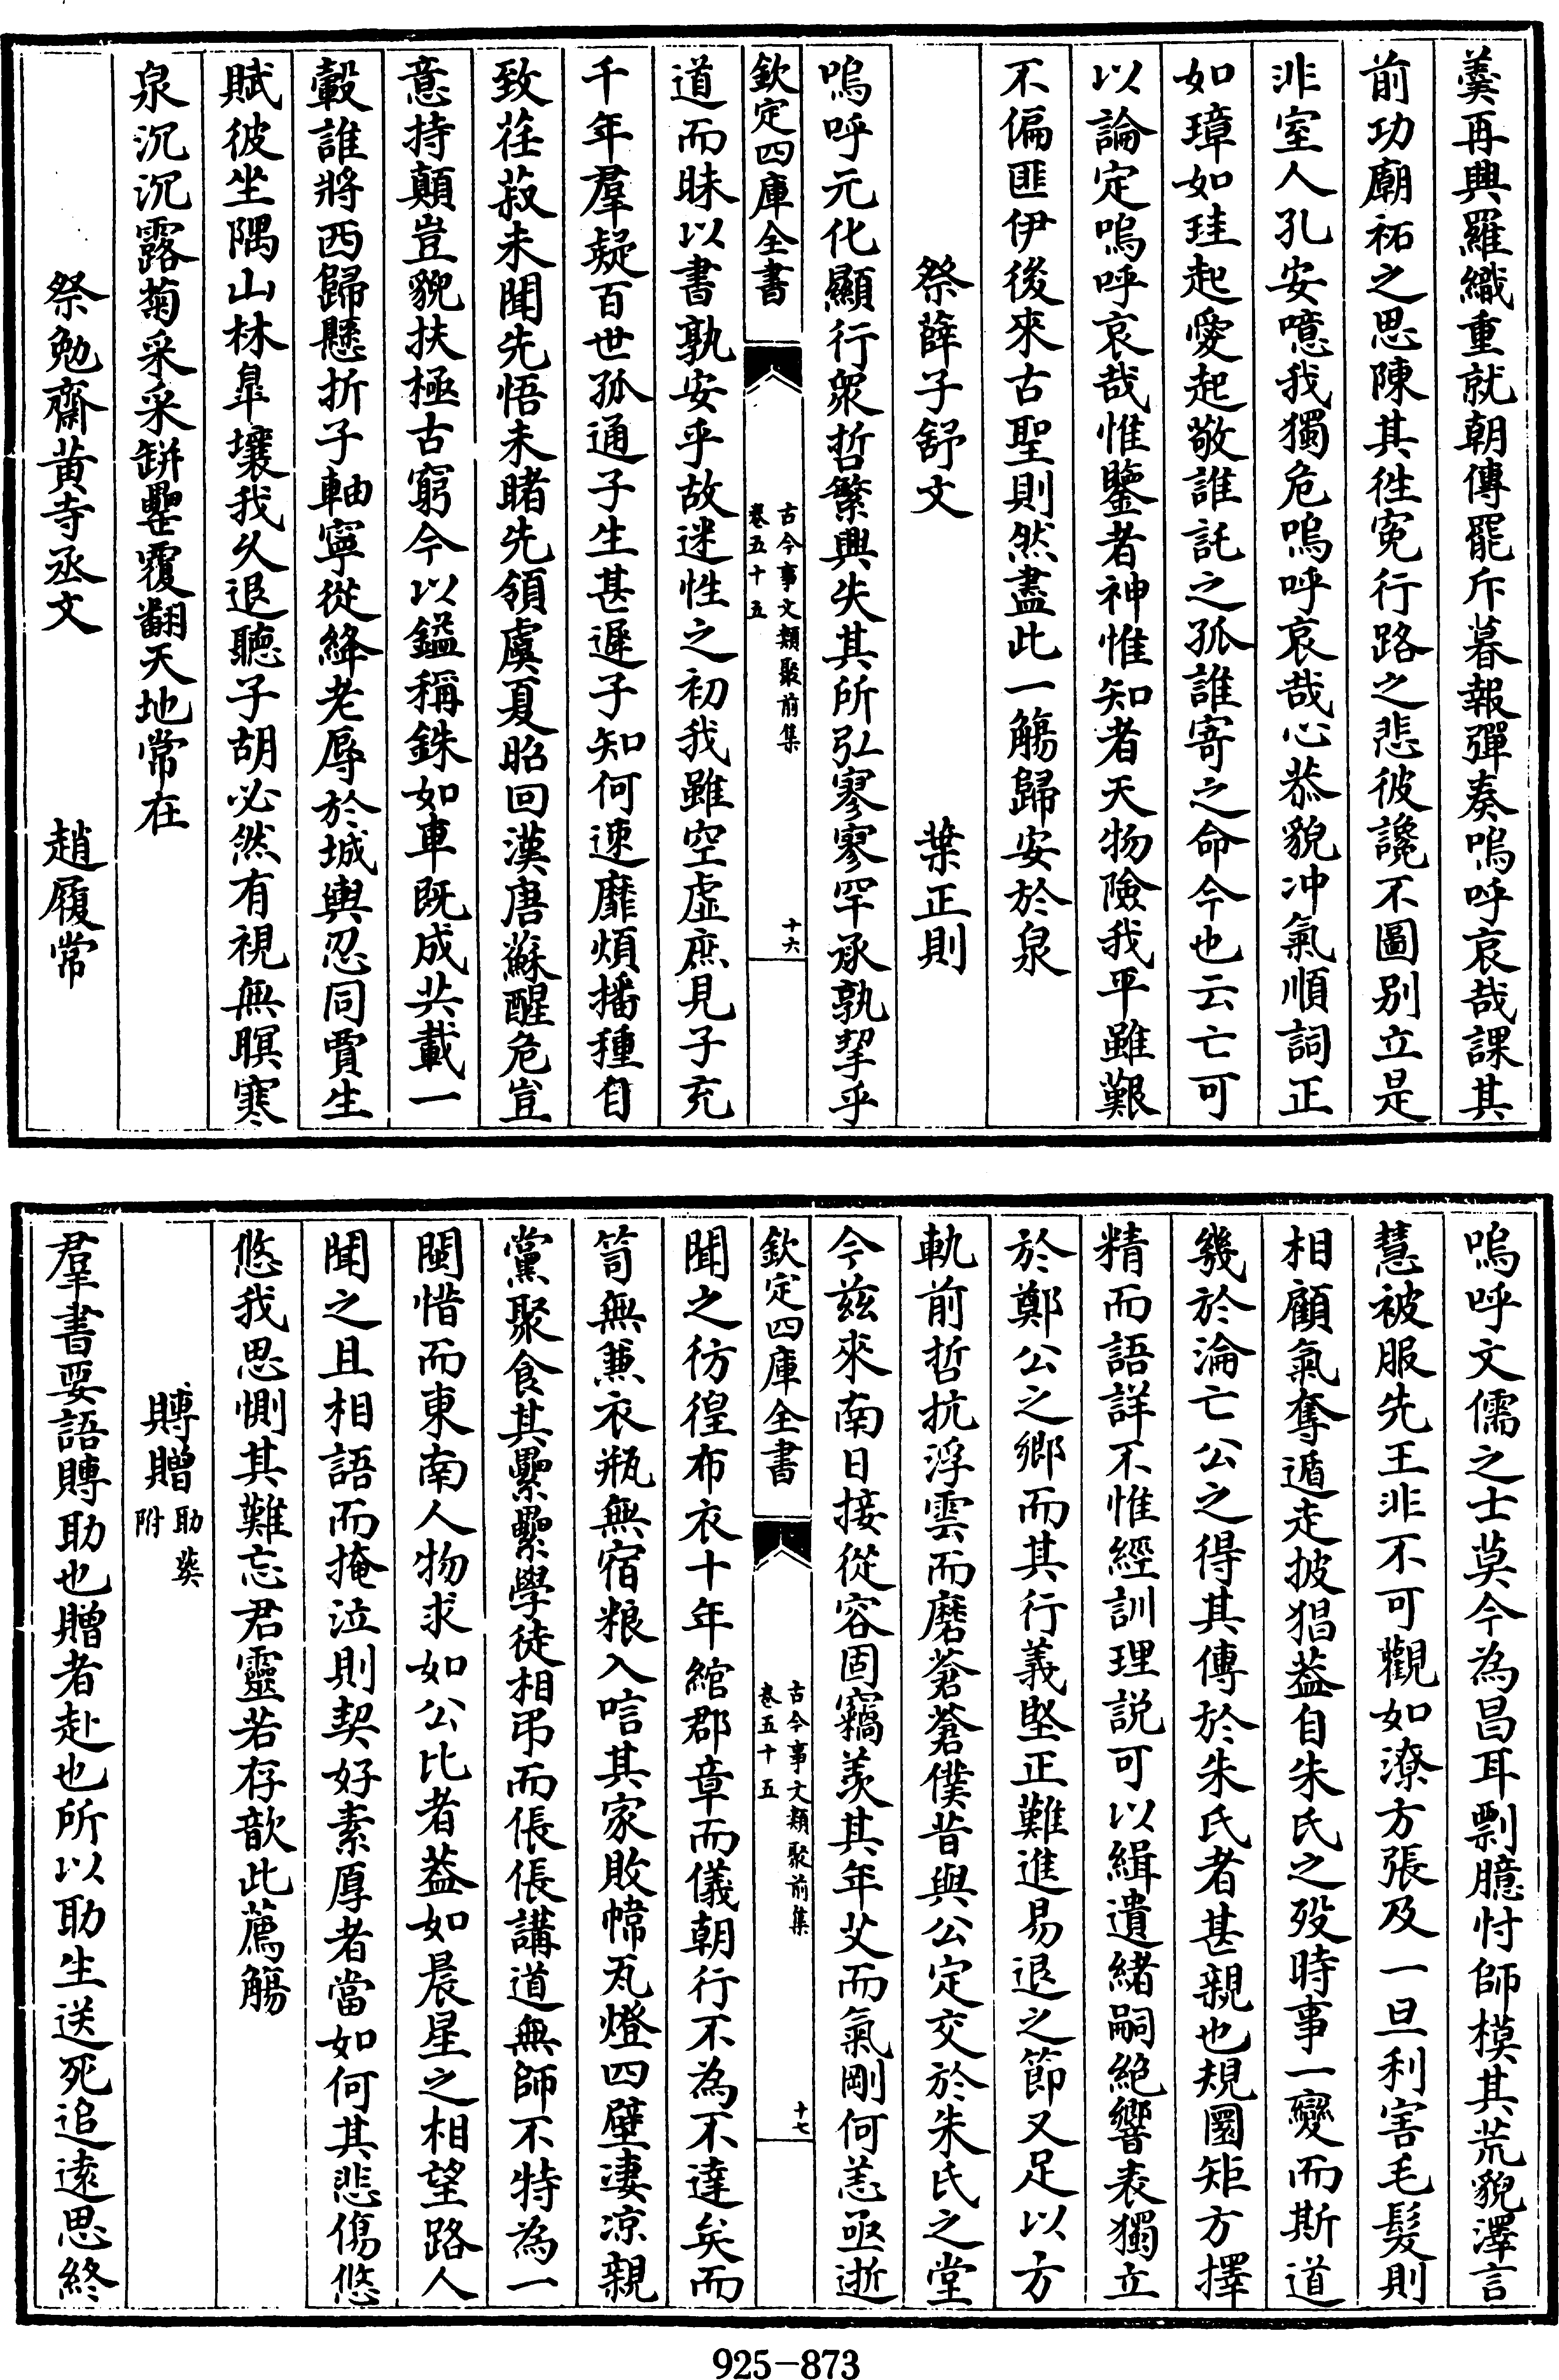 羹再興羅織重就朝傳罷斥暮報彈奏嗚呼哀哉課其
前功廟祏之思陳其徃寃行路之悲彼讒不圖别立是
非室人孔安噫我獨危嗚呼哀哉心恭貌冲氣順詞正
如璋如珪起愛起敬誰託之孤誰寄之命今也云亡可
以論定嗚呼哀哉惟鑒者神惟知者天物險我平雖艱
不偏匪伊後來古聖則然盡此一觴歸安於泉
祭薛子舒文 葉正則
嗚呼元化顯行衆哲繁興失其所弘寥寥罕承孰挈乎
欽定四庫全書 古今事文類聚前集 卷五十五 十六
道而昧以書孰安乎故迷性之初我雖空虛庶見子充
千年羣疑百世孤通子生甚遲子知何速靡煩播種自
致荏菽未聞先悟未睹先領虞夏昭回漢唐蘇醒危豈
意持顛豈貌扶極古窮今以鎰稱銖如車既成共載一
轂誰將西歸懸折子軸寧從絳老辱於城輿忍同賈生
賦彼坐隅山林臯壤我久退聽子胡必然有視無瞑寒
泉沉沉露菊采采缾罍覆翻天地常在
祭勉齋黄寺丞文 趙履常
嗚呼文儒之士莫今為昌耳剽臆忖師模其荒貌澤言
慧被服先王非不可觀如潦方張及一旦利害毛髮則
相顧氣奪遁走披猖葢自朱氏之殁時事一變而斯道
幾於淪亡公之得其傳於朱氏者甚親也規圜矩方擇
精而語詳不惟經訓理説可以緝遺緒嗣絶響表獨立
於鄭公之鄉而其行義堅正難進易退之節又足以方
軌前哲抗浮雲而磨蒼蒼僕昔與公定交於朱氏之堂
今兹來南日接從容固竊羡其年艾而氣剛何恙亟逝
欽定四庫全書 古今事文類聚前集 卷五十五 十七
聞之彷徨布衣十年綰郡章而儀朝行不為不達矣而
笥無兼衣瓶無宿粮入唁其家敗幃瓦燈四壁凄凉親
黨聚食其纍纍學徒相弔而倀倀講道無師不特為一
閩惜而東南人物求如公比者葢如晨星之相望路人
聞之且相語而掩泣則契好素厚者當如何其悲傷悠
悠我思惻其難忘君靈若存歆此薦觴
賻贈助葬附
羣書要語賻助也贈者赴也所以助生送死追逺思終
925-873